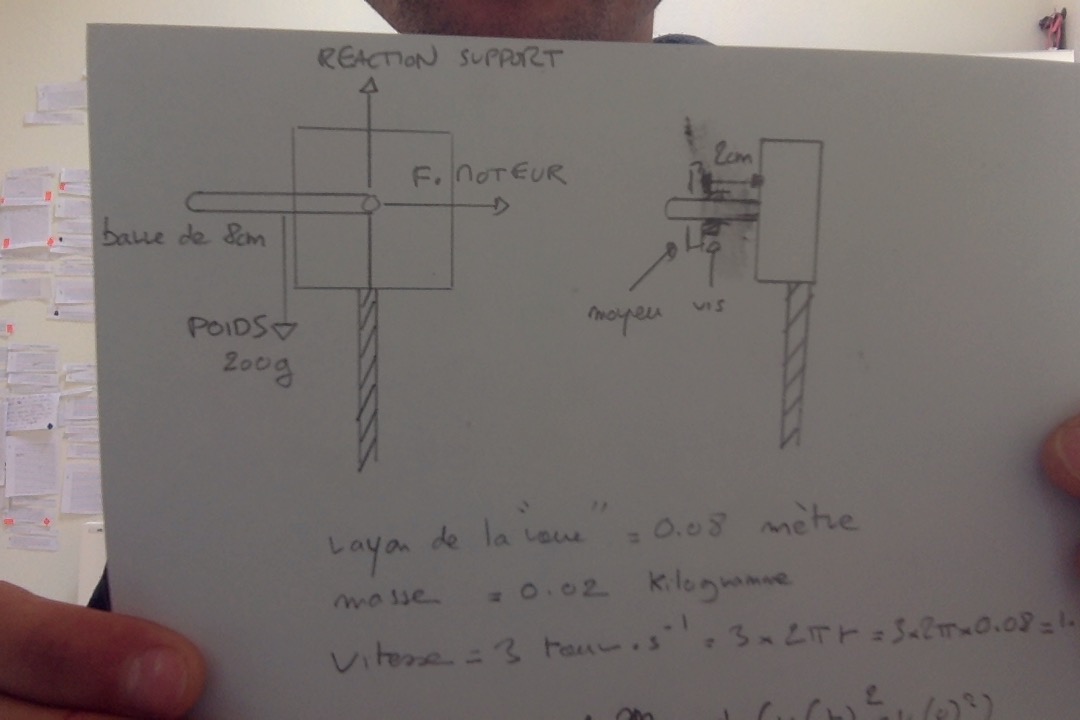 REACTION SUPPORT
F. MOTEUR
barre de 8cm
POIDS
200g
2cm
moyeu
vis
rayon de la "roue" = 0.08 mètre
masse = 0.02 kilogramme
Vitesse = 3 tour.s⁻¹ = 3 × 2π r = 3×2π×0.08 = 1.